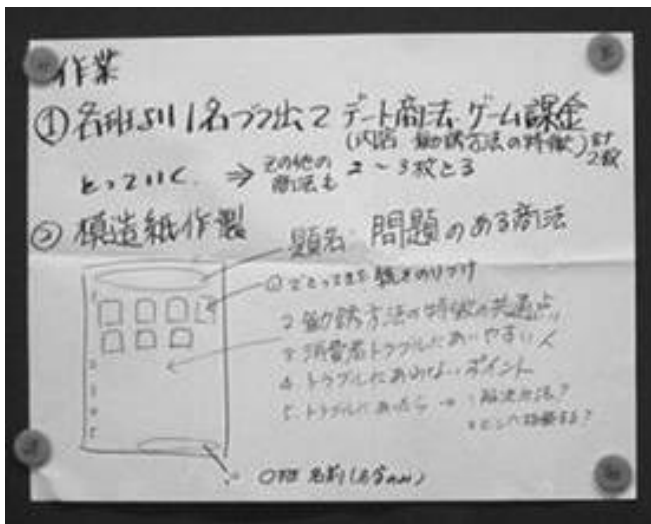 作業
① 各班より1名づつ出て デート商法、ゲーム課金
(内容 勧誘方法の特徴) 計2枚
とっていく ⇒ その他の商法も 2~3枚とる
② 模造紙作製
題名 問題のある商法
① でとってきた 紙をのりづけ
2 勧誘方法の特徴の共通点
3 消費者トラブルにあいやすい人
4 トラブルにあわないポイント
5 トラブルにあったら → ・解決方法?
・どこへ相談する?
○班 名前